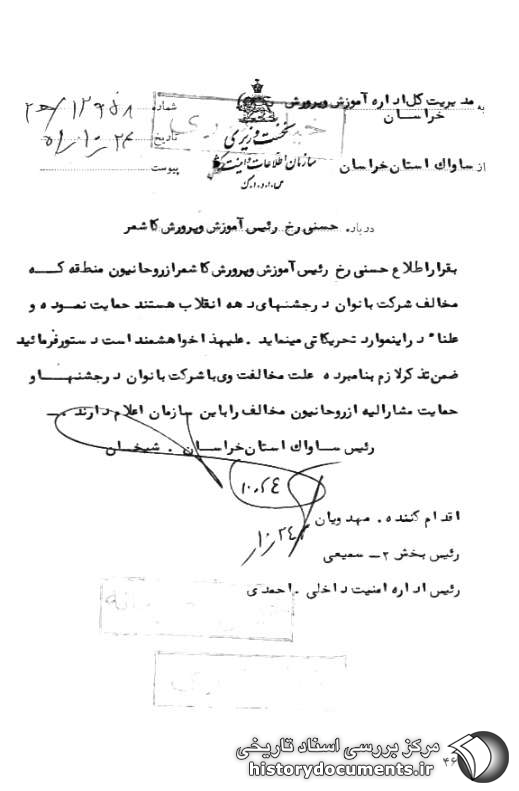 به مدیریت کل اداره آموزش و پرورش خراسان
از ساواک استان خراسان
نخست وزیری
سازمان اطلاعات و امنیت کشور
س.ا.و.ا.ک
شماره
تاریخ
پیوست
درباره حسنی رخ رئیس آموزش و پرورش کاشمر
بقرار اطلاع حسنی رخ رئیس آموزش و پرورش کاشمر از روحانیون منطقه که
مخالف شرکت بانوان در جشنهای دهه انقلاب هستند حمایت نموده و
علنا" در اینموارد تحریکاتی مینماید. علیهذا خواهشمند است دستور فرمائید
ضمن تذکر لازم بنامبرده علت مخالفت وی با شرکت بانوان در جشنها و
حمایت مشارالیه از روحانیون مخالف را باین سازمان اعلام دارند.
رئیس ساواک استان خراسان . شیخان
۱۰،۲۴
اقدام کننده . مهدویان
رئیس بخش ۲ـ سمیعی
رئیس اداره امنیت داخلی . احمدی
مرکز بررسی اسناد تاریخی
historydocuments.ir
۴۶